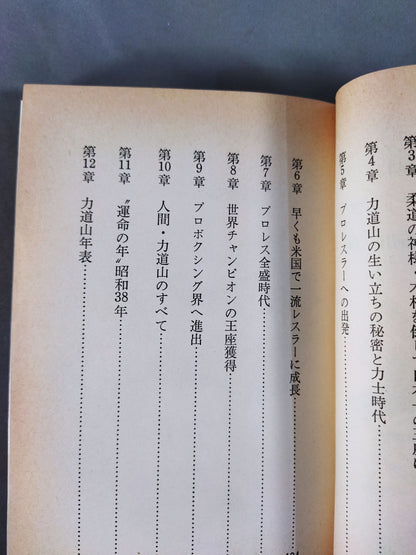 第4章 力道山の生い立ちの秘密と力士時代
第5章 プロレスラーへの出発
第6章 早くも米国で一流レスラーに成長
第7章 プロレス全盛時代
第8章 世界チャンピオンの王座獲得
第9章 プロボクシング界へ進出
第10章 人間・力道山のすべて
第11章 〝運命の年〟昭和38年
第12章 力道山年表